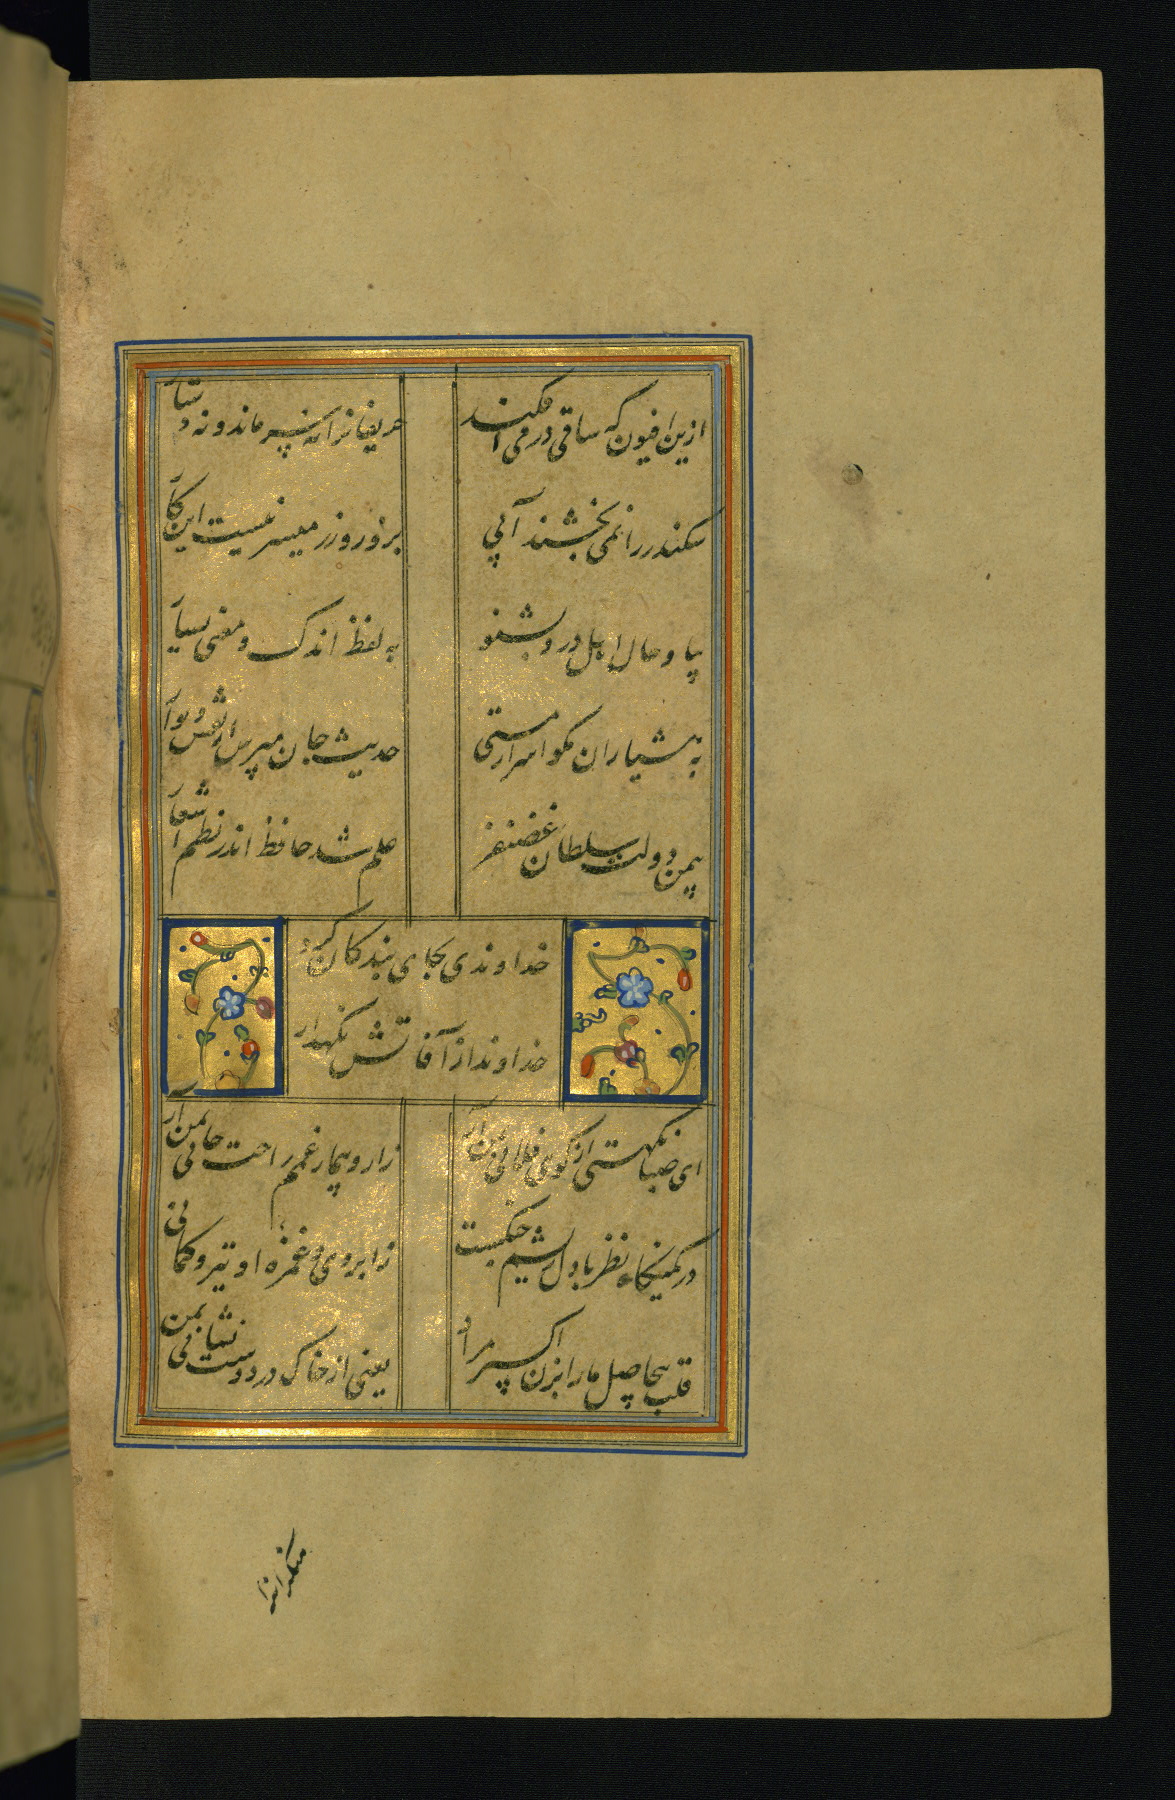 ازین افیون که ساقی در می افکند
حریفانرا نه سر ماند و نه دستار
سکندر را نمی بخشند آبی
بزور و زر میسر نیست این کار
بیا و حال اهل درد بشنو
به لفظ اندک و معنی بسیار
به هشیاران مگو اسرار مستی
حدیث جان مپرس از نقش دیوار
بیمن دولت سلطان غضنفر
علم شد حافظ اندر نظم اشعار
خداوندی بجای بندگان کرد
خداوندا ز آفاتش نگهدار
ای صبا نکهتی از کوی فلانی بمن آر
زار و بیمار غمم راحت جانی بمن آر
در کمینگاه نظر با دل خویشم جنگست
ز ابروی و غمزه او تیر و کمانی
قلب بیحاصل ما را بزن اکسیر مراد
یعنی از خاک در دوست نشانی بمن